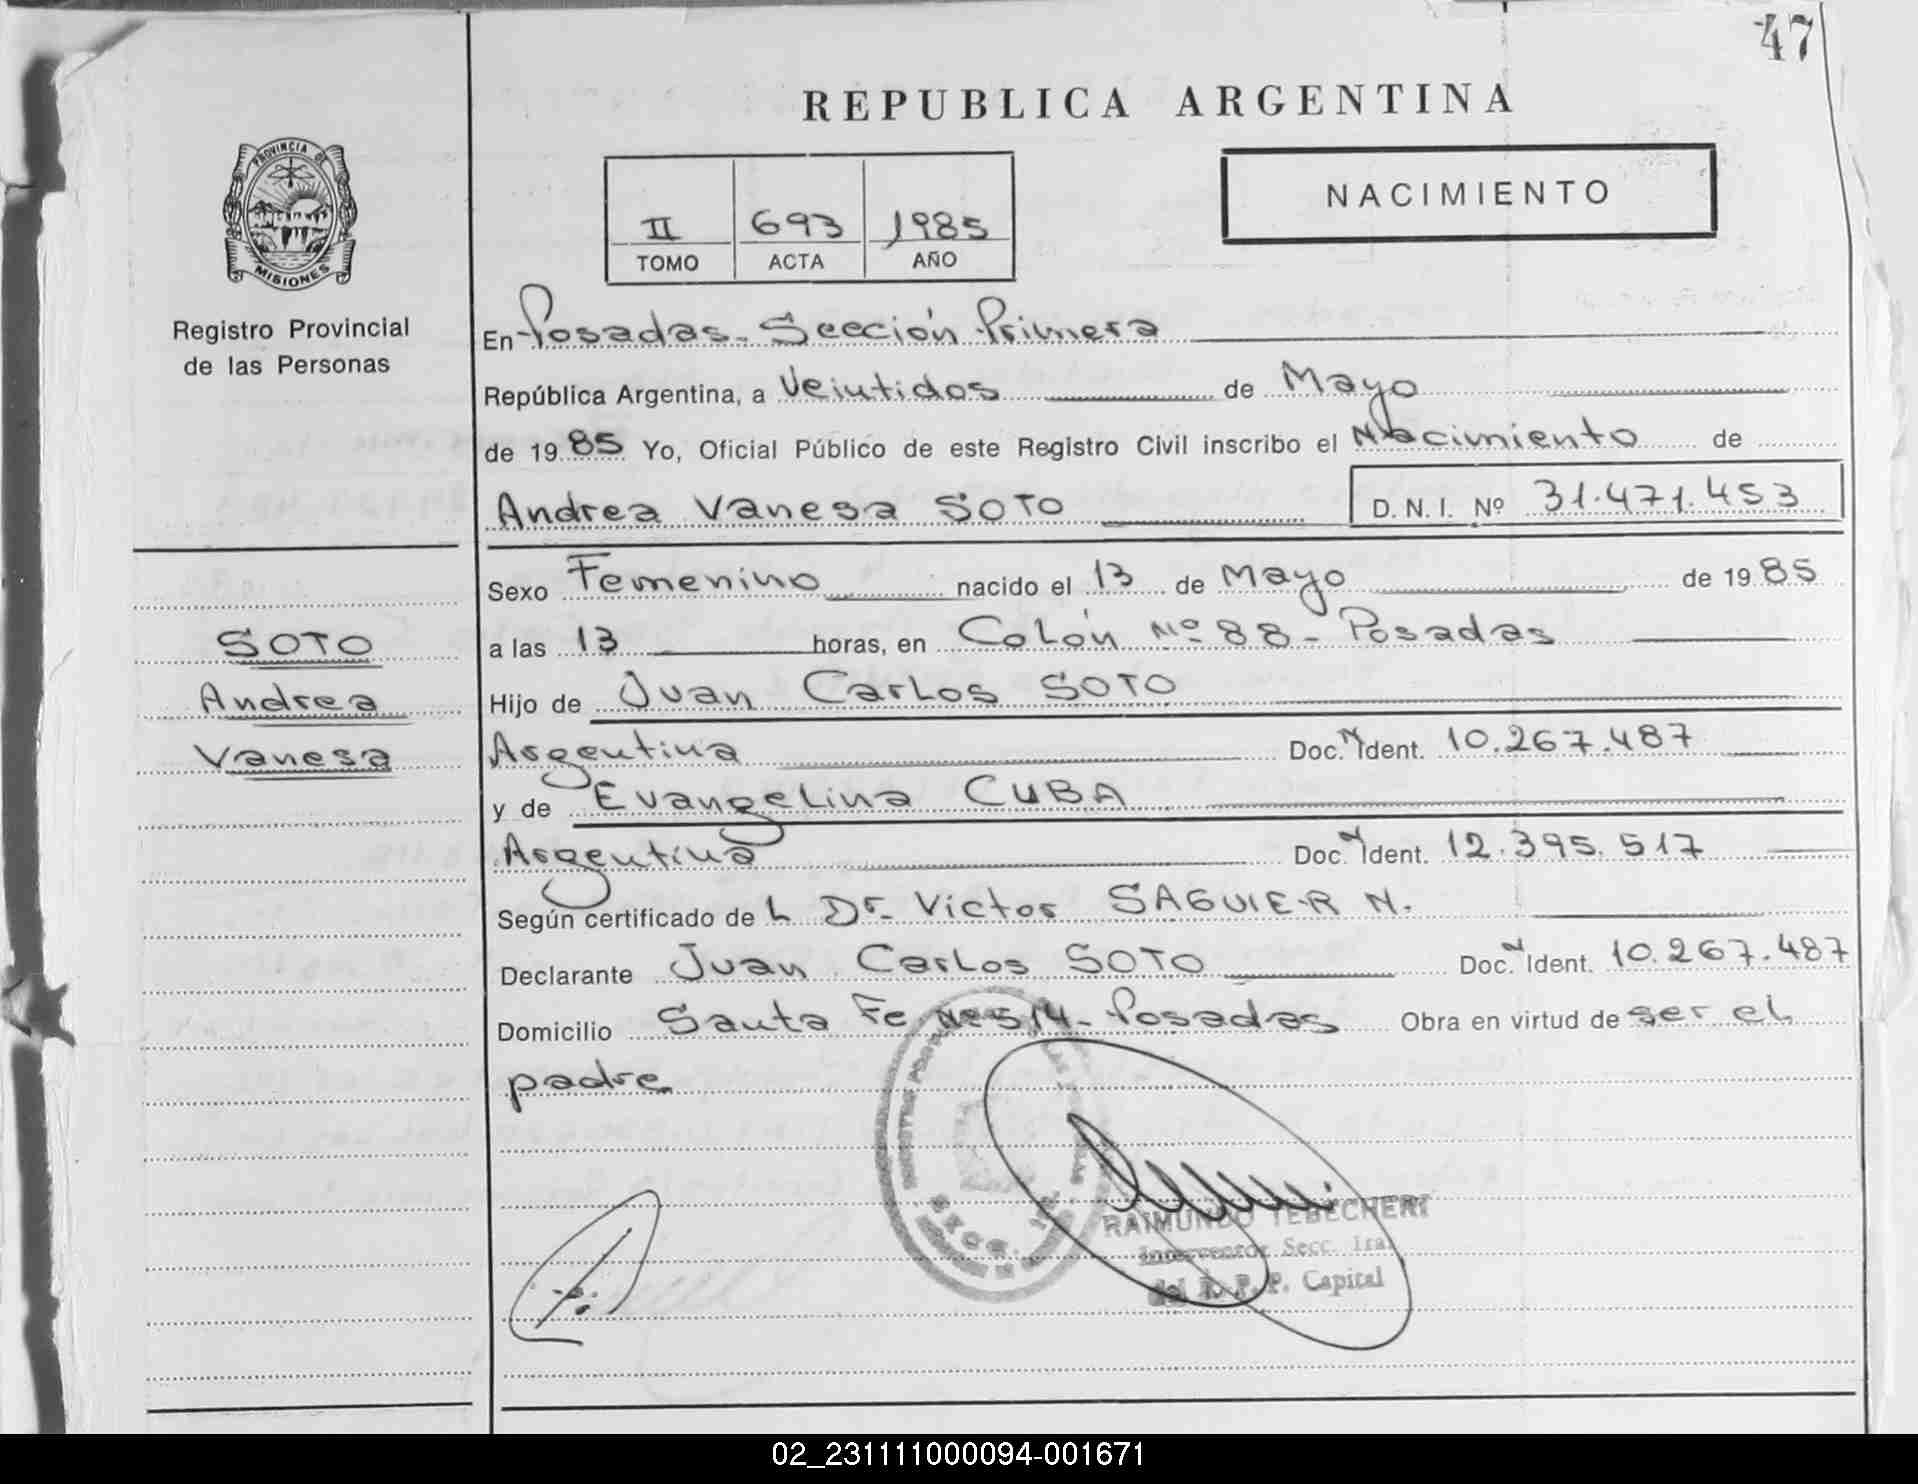 47
REPUBLICA ARGENTINA
PROVINCIA DE
MISIONES
Registro Provincial
de las Personas
II 693 1985
TOMO ACTA AÑO
NACIMIENTO
En Posadas. Sección Primera
República Argentina, a Veintidos de Mayo
de 19 85 Yo, Oficial Público de este Registro Civil inscribo el Nacimiento de
Andrea Vanesa SOTO D. N. I. Nº 31.471.453
Sexo Femenino nacido el 13 de Mayo de 19 85
a las 13 horas, en Colón Nº 88 - Posadas
Hijo de Juan Carlos SOTO
Argentina Doc. N Ident. 10.267.487
y de Evangelina CUBA
Argentina Doc. N Ident. 12.395.517
Según certificado de L Dr. Victor SAGUIER N.
Declarante Juan Carlos SOTO Doc. N Ident. 10.267.487
Domicilio Santa Fe Nº 514 - Posadas Obra en virtud de ser el
padre
SOTO
Andrea
Vanesa
RAIMUNDO TEBECHERI
Interventor Secc. 1ra.
del R. P. P. Capital
02_231111000094-001671